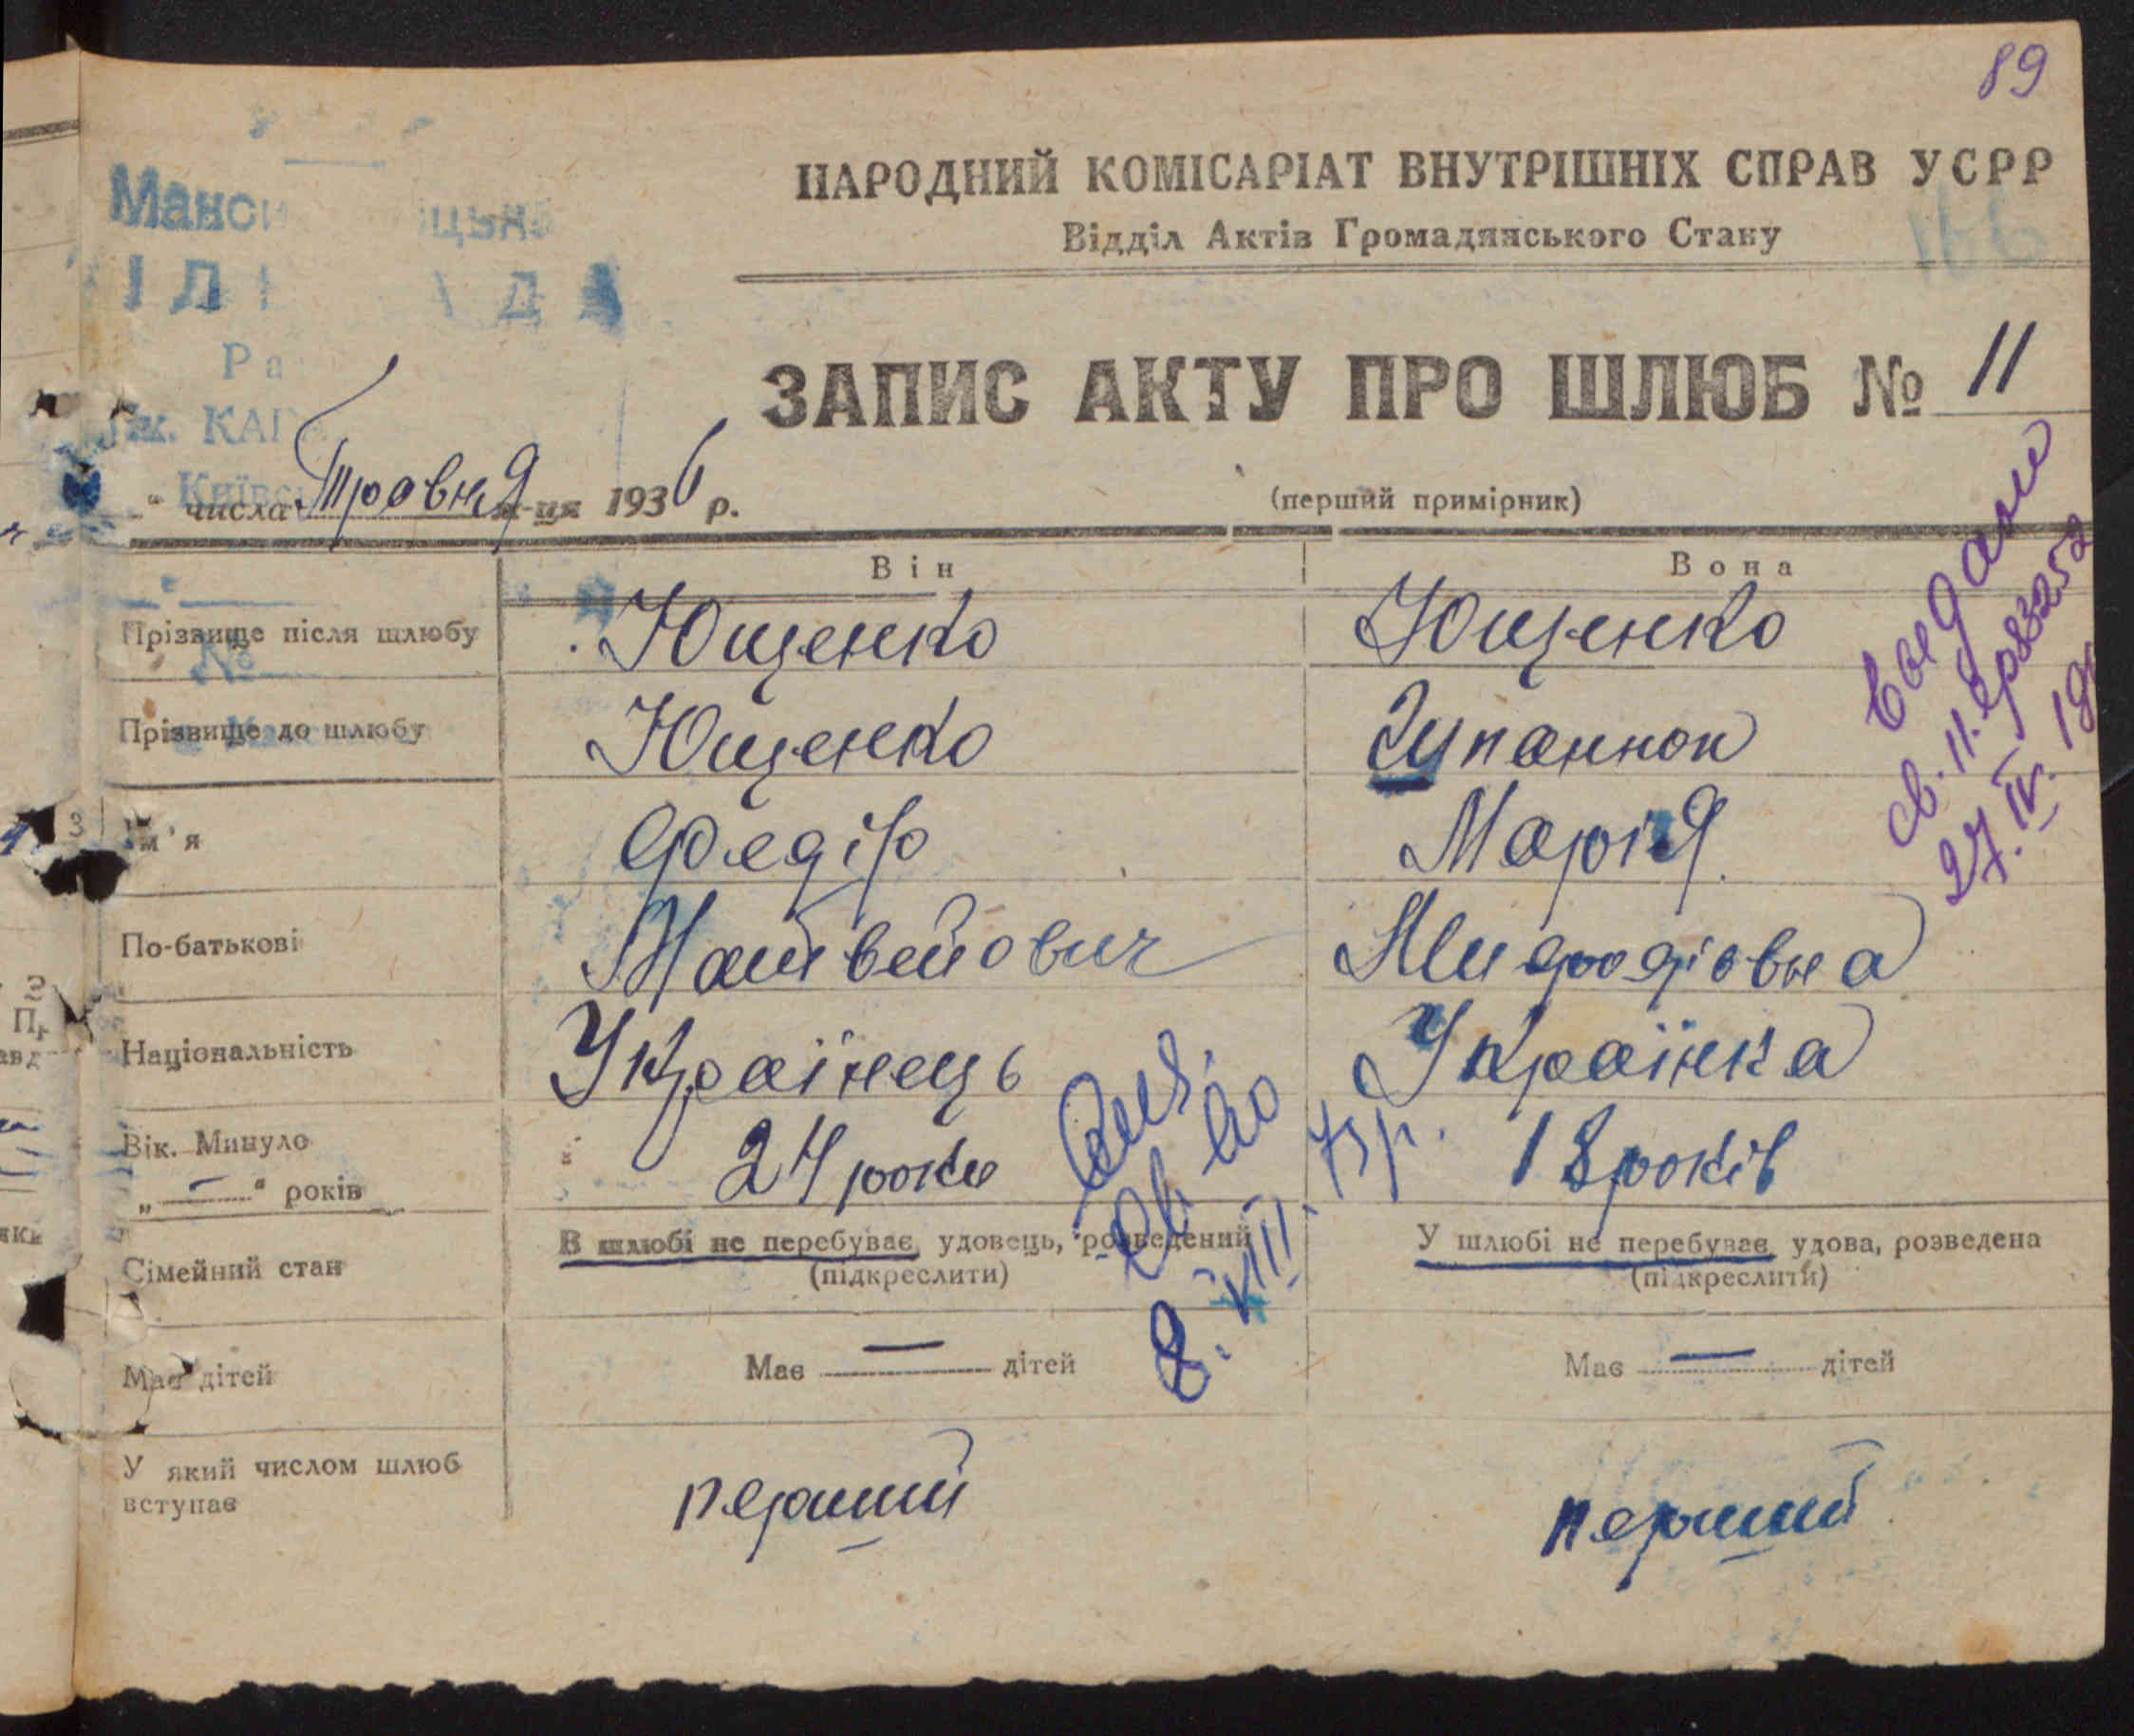 89
НАРОДНИЙ КОМІСАРІАТ ВНУТРІШНІХ СПРАВ УСРР
Відділ Актів Громадянського Стану
166
ЗАПИС АКТУ ПРО ШЛЮБ № 11
" числа Травня м-ця 1936 р.
(перший примірник)
Він Вона
Прізвище після шлюбу Ющенко Ющенко
Прізвище до шлюбу Ющенко
Ім'я Федір Марія
По-батькові Матвейович
Національність Українець Українка
Вік. Минуло 24 роки 18 років
„—" років
Сімейний стан В шлюбі не перебуває, удовець, розведений У шлюбі не перебуває, удова, розведена
(підкреслити) (підкреслити)
Має дітей Має — дітей Має — дітей
У який числом шлюб
вступає перший перший
8. VIII. 73 р.
27. IV. 19